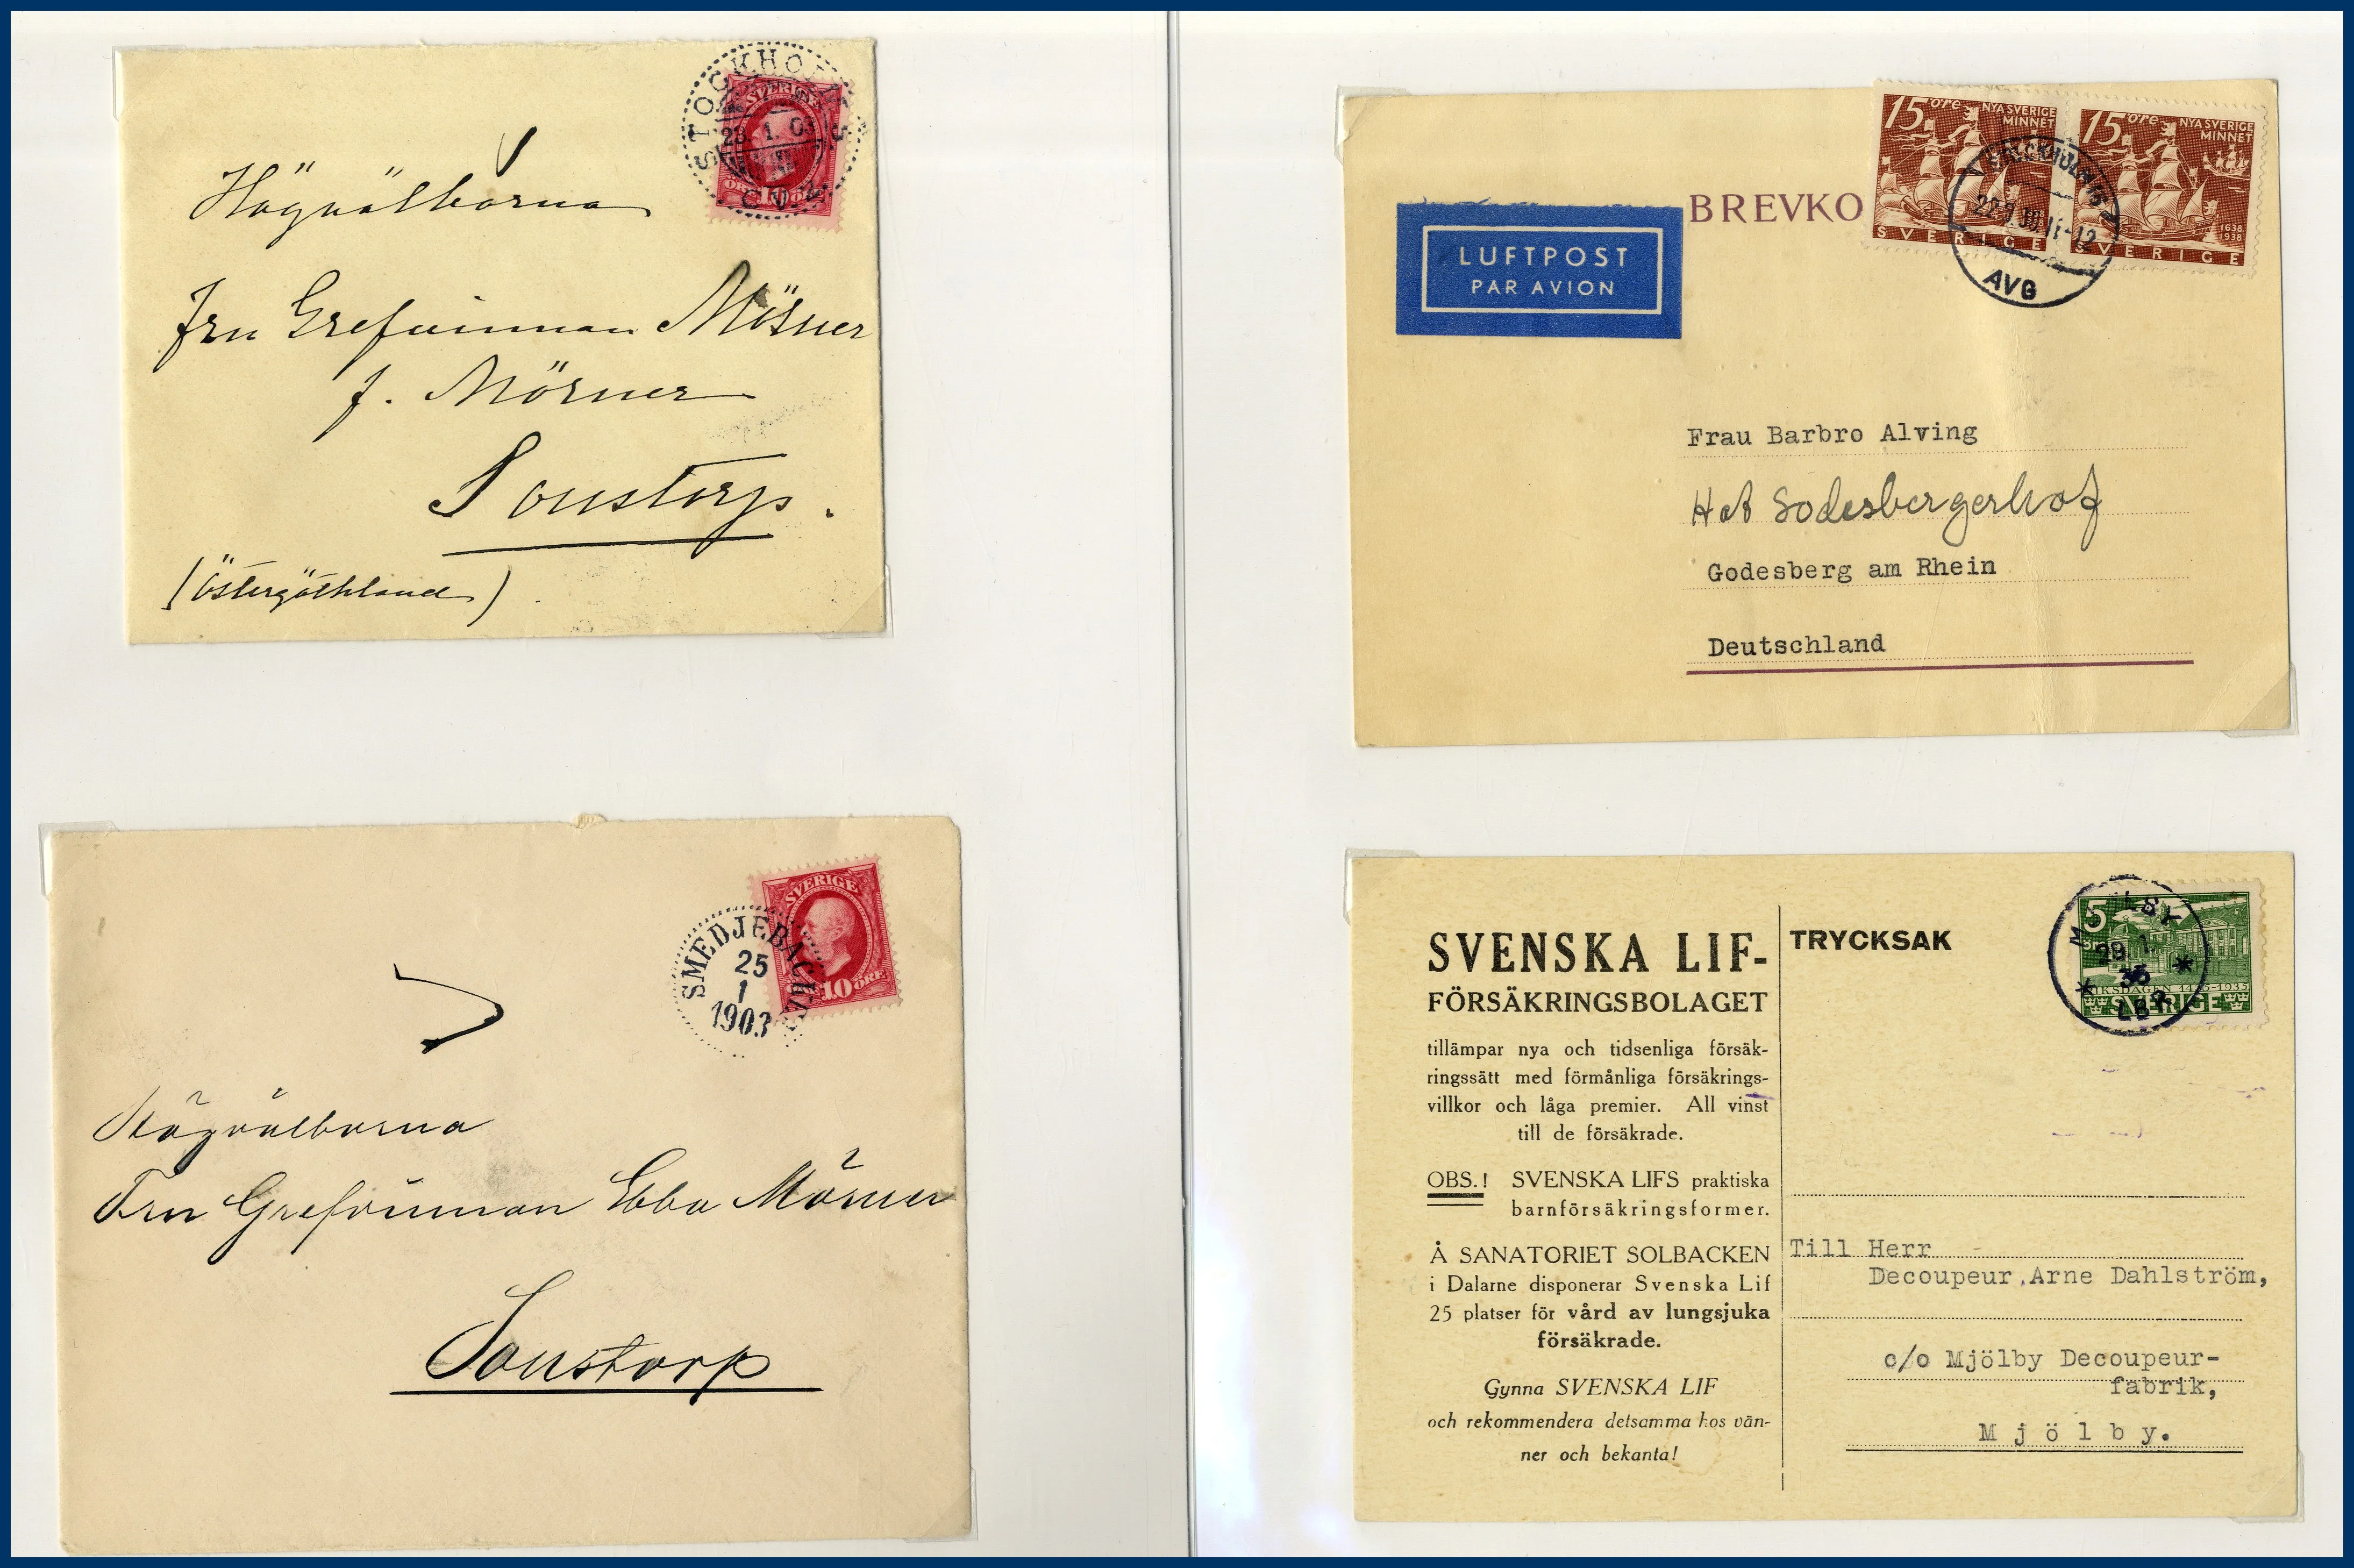 STOCKHOLM 5
23. 1. 03
SVERIGE
ÖRE 10
Högvälborna
Fru Grefvinnan Mörner
f. Mörner
Sonstorp.
(Östergöthland)
SVERIGE
10 ÖRE
SMEDJEBACKEN
25
1
1903
Högvälborna
Fru Grefvinnan Ebba Mörner
Sonstorp
15 öre NYA SVERIGE
MINNET
1638
1938
SVERIGE
15 öre NYA SVERIGE
MINNET
1638
1938
SVERIGE
STOCKHOLM 16
11-12
AVG
BREVKO
LUFTPOST
PAR AVION
Frau Barbro Alving
Godesbergerhof
Godesberg am Rhein
Deutschland
5
MJÖLBY
29. 1.
35
LBR
RIKSDAGEN 1435-1935
SVERIGE
SVENSKA LIF-
FÖRSÄKRINGSBOLAGET
tillämpar nya och tidsenliga försäk-
ringssätt med förmånliga försäkrings-
villkor och låga premier. All vinst
till de försäkrade.
OBS.! SVENSKA LIFS praktiska
barnförsäkringsformer.
Å SANATORIET SOLBACKEN
i Dalarne disponerar Svenska Lif
25 platser för vård av lungsjuka
försäkrade.
Gynna SVENSKA LIF
och rekommendera detsamma hos vän-
ner och bekanta!
TRYCKSAK
Till Herr
Decoupeur Arne Dahlström,
c/o Mjölby Decoupeur-
fabrik,
Mjölby.